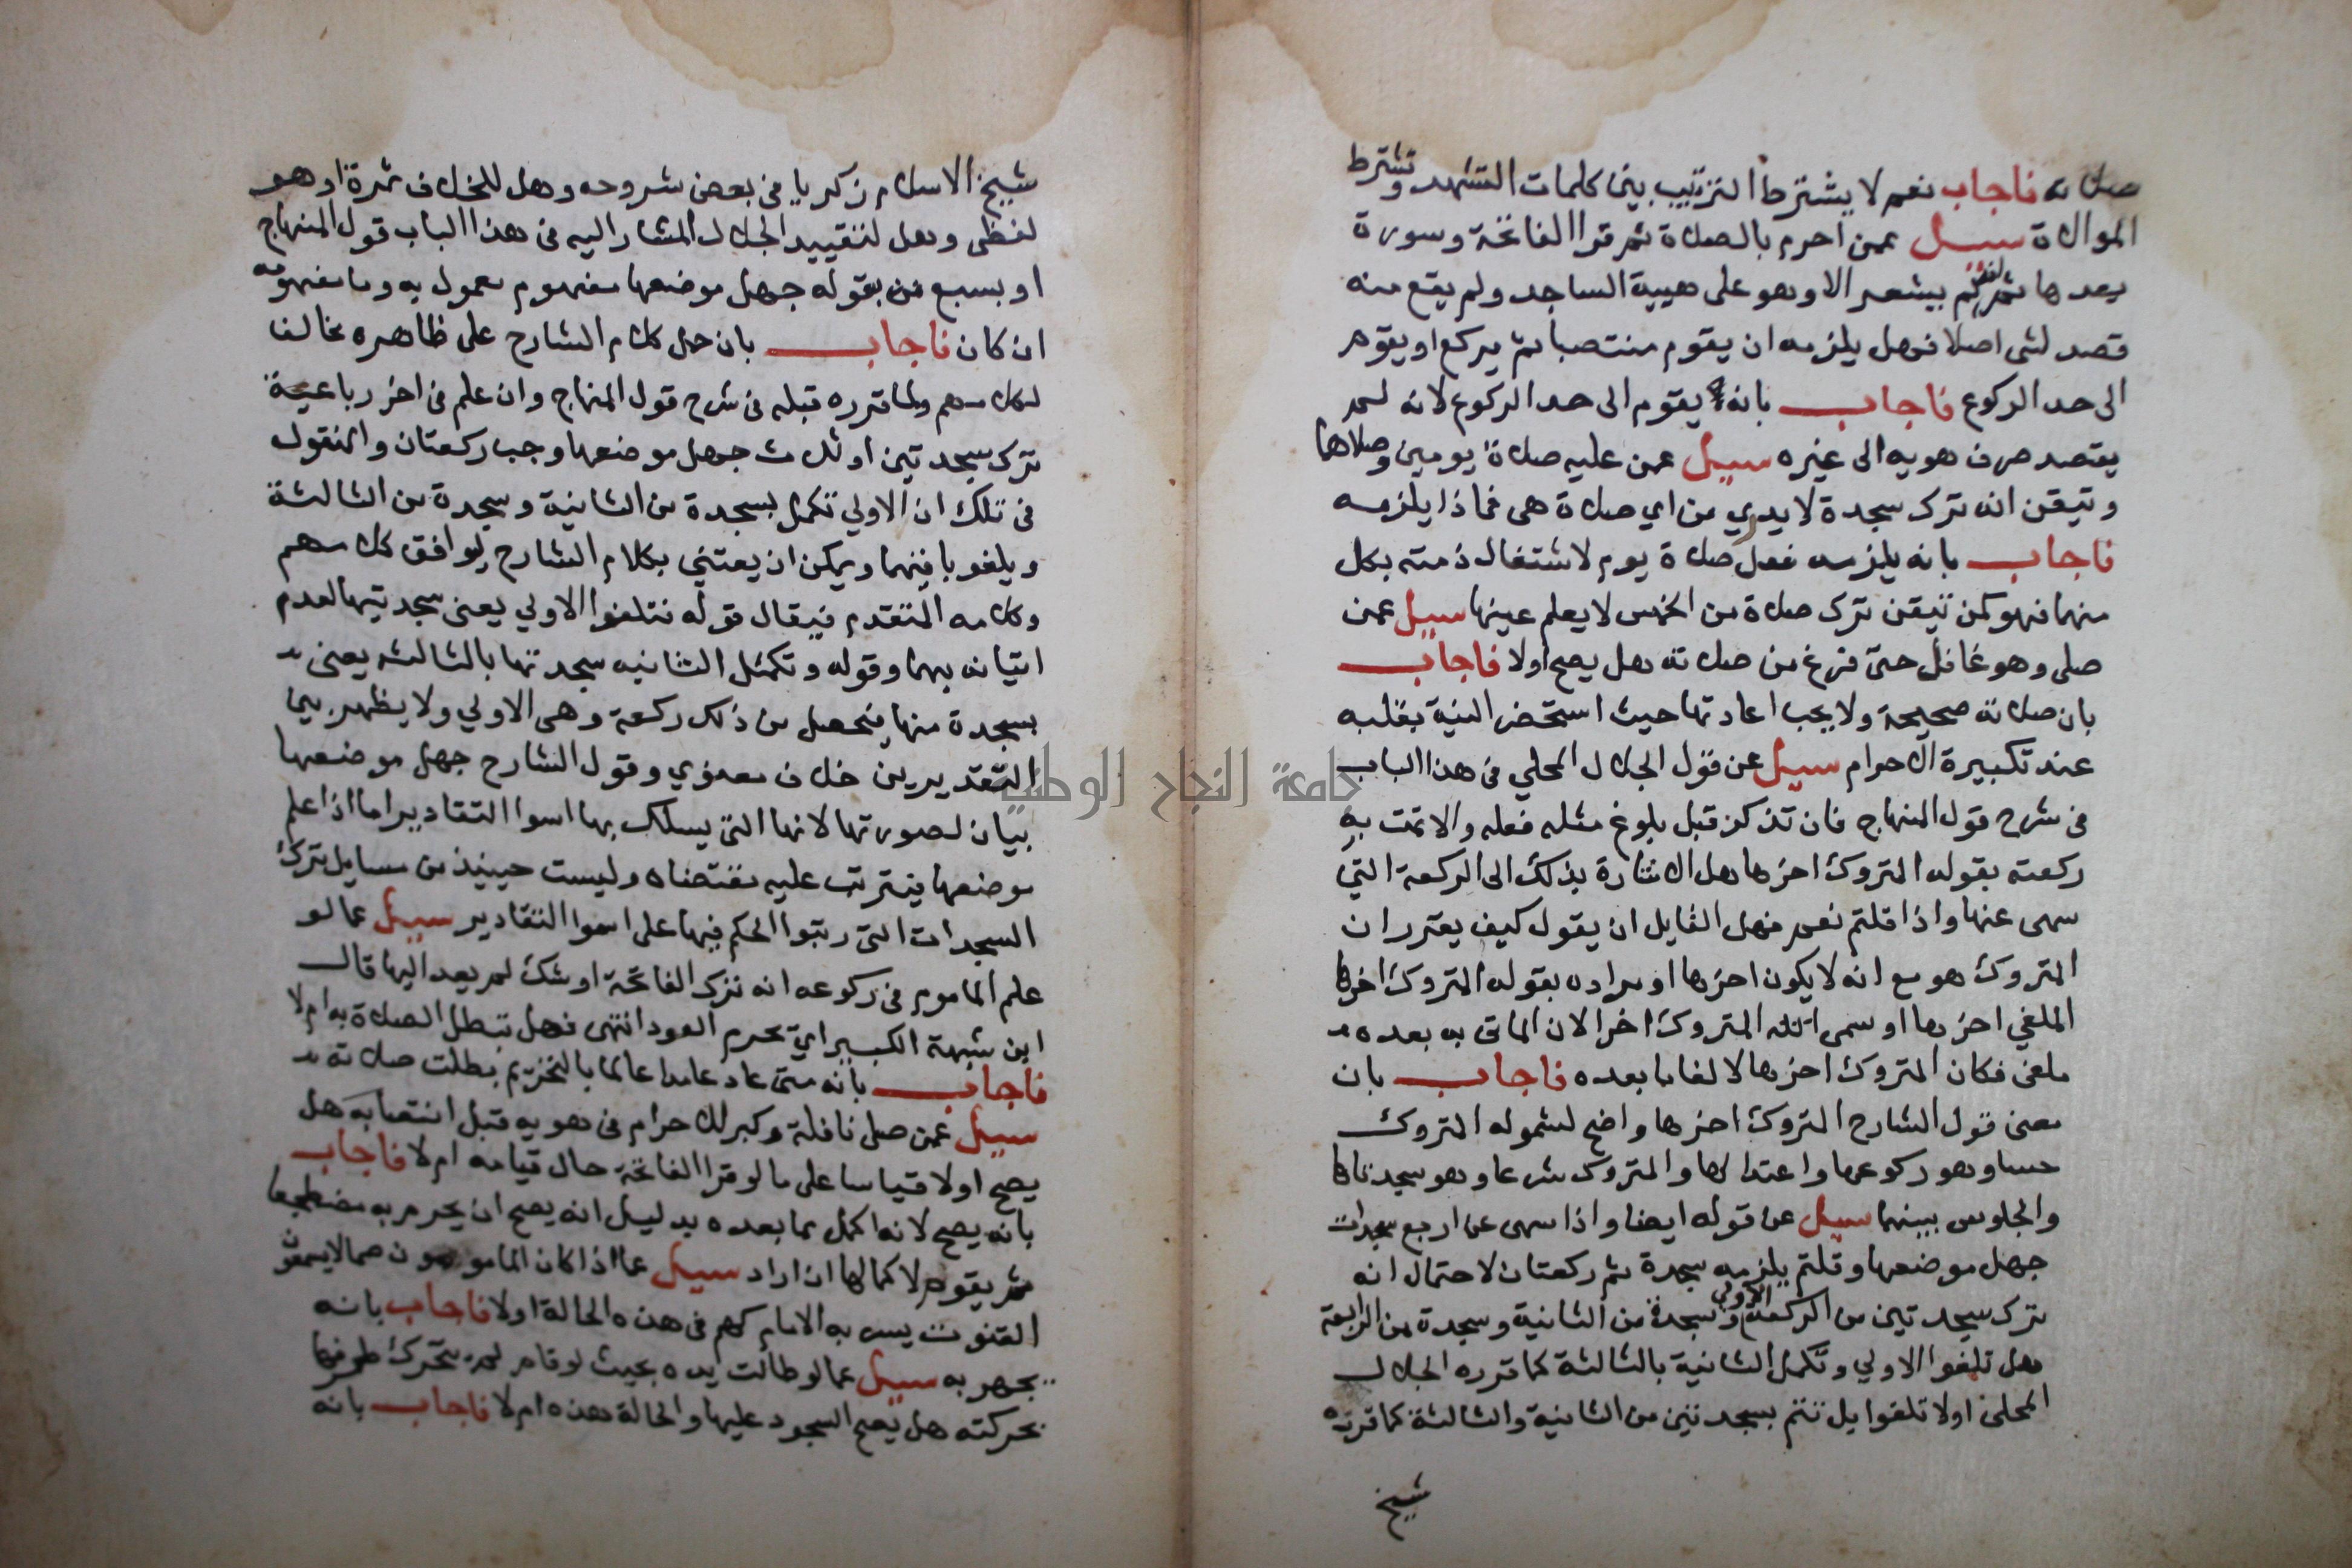 صلاته فاجاب نعم لا يشترط الترتيب بين كلمات التشهد وتشترط
الموالاة سيل عمن احرم بالصلاة ثم قرا الفاتحة وسورة
بعدها ثم لم يشعر الا وهو على هيية الساجد ولم يقع منه
قصد لشى اصلا فهل يلزمه ان يقوم منتصبا ثم يركع او يقوم
الى حد الركوع فاجاب بانه يقوم الى حد الركوع لانه لم
يقصد صرف هويه الى غيره سيل عمن عليه صلاة يومين وصلاها
وتيقن انه ترك سجدة لا يدري من اي صلاة هى فماذا يلزمه
فاجاب بانه يلزمه فعل صلاة يوم لاشتغال ذمته بكل
منهما فهو كمن تيقن ترك صلاة من الخمس لا يعلم عينها سيل عمن
صلى وهو غافل حتى فرغ من صلاته هل يصح اولا فاجاب
بان صلاته صحيحة ولا يجب اعادتها حيث استحضر النية بقلبه
عند تكبيرة الاحرام سيل عن قول الجلال المحلي فى هذا الباب
فى شرح قول المنهاج فان تذكر قبل بلوغ مثله فعله والا تمت به
ركعته بقوله المتروك اخرها هل الاشارة بذلك الى الركعة التي
سهى عنها واذا قلتم نعم فهل القايل ان يقول كيف يقرر ان
المتروك هو مع انه لا يكون اخرها او مراده بقوله المتروك اخرها
الملغي اخرها او سمى المتروك اخرا لان الماتى به بعده
ملغى فكان المتروك اخرها لالغا ما بعده فاجاب بان
معنى قول الشارح المتروك اخرها واضح لشموله المتروك
حسا وهو ركوعها واعتدالها والمتروك شرعا وهو سجدتاها
والجلوس بينهما سيل عن قوله ايضا واذا سهى عن اربع سجدات
جهل موضعها وقلتم يلزمه سجدة ثم ركعتان لاحتمال انه
ترك سجدتين من الركعة الاولي وسجدة من الثانية وسجدة من الرابعة
هل تلغوا الاولي وتكمل الثانية بالثالثة كما قرره الجلال
المحلى اولا تلغوا بل تتم بسجدتين من الثانية والثالثة كما قرره
شيخ
شيخ الاسلام زكريا في بعض شروحه وهل للخلاف ثمرة او هو
لفظى وهل لتقييد الجلال المشار اليه فى هذا الباب قول المنهاج
او بسبع من بقوله جهل موضعها مفهوم معمول به وما مفهومه
ان كان فاجاب بان حمل كلام الشارح على ظاهره مخالف
لكلامهم ولما قرره قبله فى شرح قول المنهاج وان علم فى اخر رباعية
ترك سجدتين او ثلاث جهل موضعها وجب ركعتان والمنقول
فى تلك ان الاولي تكمل بسجدة من الثانية وسجدة من الثالثة
ويلغو باقيهما ويمكن ان يعتني بكلام الشارح ليوافق كلامهم
وكلامه المتقدم فيقال قوله فتلغوا الاولي يعنى سجدتيها لعدم
اتيانه بهما وقوله وتكمل الثانيه سجدتها بالثالثه يعنى
بسجدة منها فيحصل من ذلك ركعة وهى الاولي ولا يظهر بين
التقديرين خلاف معنوي وقول الشارح جهل موضعها
بيان لصورتها لانها التى يسلك بها اسوا التقادير اما اذا علم
موضعها فيترتب عليه مقتضاه وليست حينيذ من مسايل ترك
السجدات التى رتبوا الحكم فيها على اسوا التقادير سيل عما لو
علم الماموم فى ركوعه انه ترك الفاتحة او شك لم يعد اليها قال
ابن شبهة الكبير اي يحرم العود انتهى فهل تبطل الصلاة به ام لا
فاجاب بانه متى عاد عامدا عالما بالتحريم بطلت صلاته
سيل عمن صلى نافلة وكبر للاحرام فى هويه قبل انتصابه هل
يصح اولا قياسا على ما لو قرا الفاتحة حال قيامه ام لا فاجاب
بانه يصح لانه اكمل مما بعده بدليل انه يصح ان يحرم به مضطجعا
ثم يقوم لاكمالها ان اراد سيل عما اذا كان المامومون صما لا يسمعون
القنوت يسن به الامام كهم فى هذه الحالة اولا فاجاب بانه
يجهر به سيل عما لو طالت يده بحيث لو قام لم يتحرك طرفها
بحركته هل يصح السجود عليها والحالة هذه ام لا فاجاب بانه
جامعة النجاح الوطنية